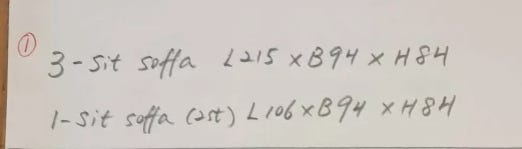 ①
3-sit soffa L215 x B94 x H84
1-sit soffa (2st) L106 x B94 x H84